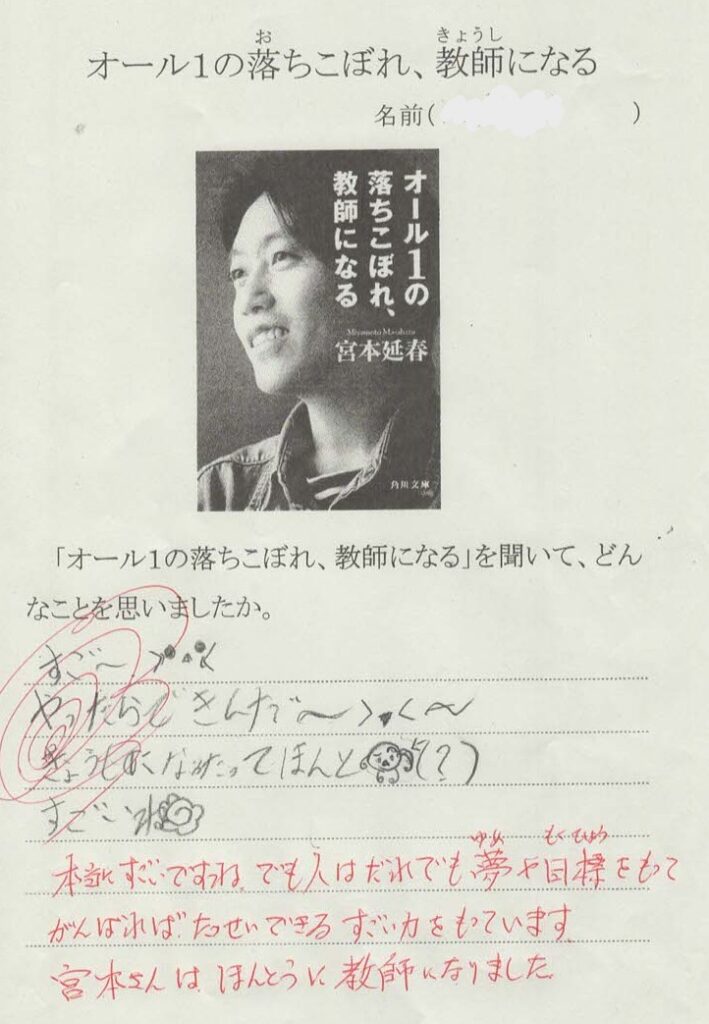 お　きょうし
オール1の落ちこぼれ、教師になる
名前(　　　)
オール1の
落ちこぼれ、
教師になる
Miyamoto Masaharu
宮本延春
角川文庫
「オール1の落ちこぼれ、教師になる」を聞いて、どん
なことを思いましたか。
すご〜
やったらできんだで〜>.<〜
きょうしになったってほんと(?)
すごいね
ゆめ　もくひょう
本当にすごいですうね でも人はだれでも夢や目標をもって
がんばれば たっせいできる すごい力をもっています
宮本さんは ほんとうに 教師になりました